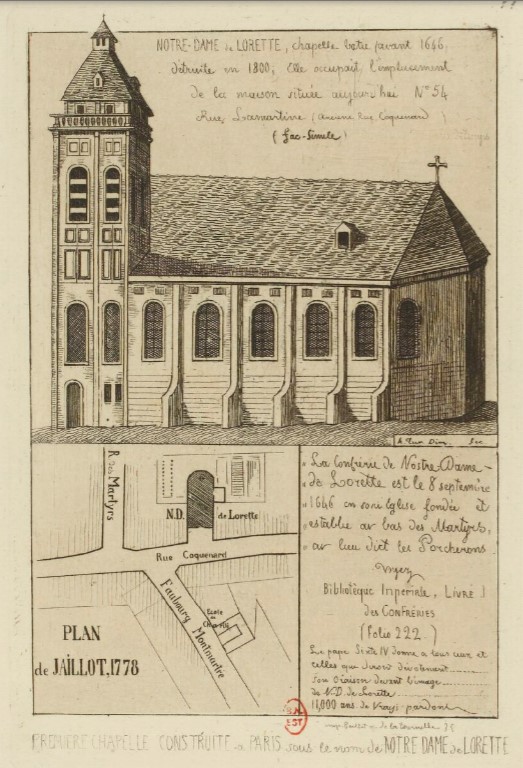 NOTRE-DAME de LORETTE, chapelle batie avant 1646,
détruite en 1800; Elle occupait l'emplacement
de la maison située aujour-hui Nº 54
Rue Lamartine (ancienne Rue Coquenard)
(fac-Simile)
R. des Martyrs
N.D. de Lorette
Rue Coquenard
Faubourg Montmartre
Ecole de Charité
PLAN
de JAILLOT, 1778
La Confrérie de Nostre-Dame-
de Lorette est le 8 septembre
1646 en son Eglise fondée et
establie av bas des Martyrs,
av lieu dict les Porcherons
Voyez
Bibliothèque Impériale, Livre
des CONFRÉRIES
(Folio 222.)
Le pape Sixte IV donne à tous ceux et
celles qui diront dévotement
son Oraison devant l'image
de N.D. de Lorette
11,000 ans de Vrays-pardons
EST
PREMIERE CHAPELLE CONSTRUITE a PARIS sous le nom de NOTRE DAME de LORETTE